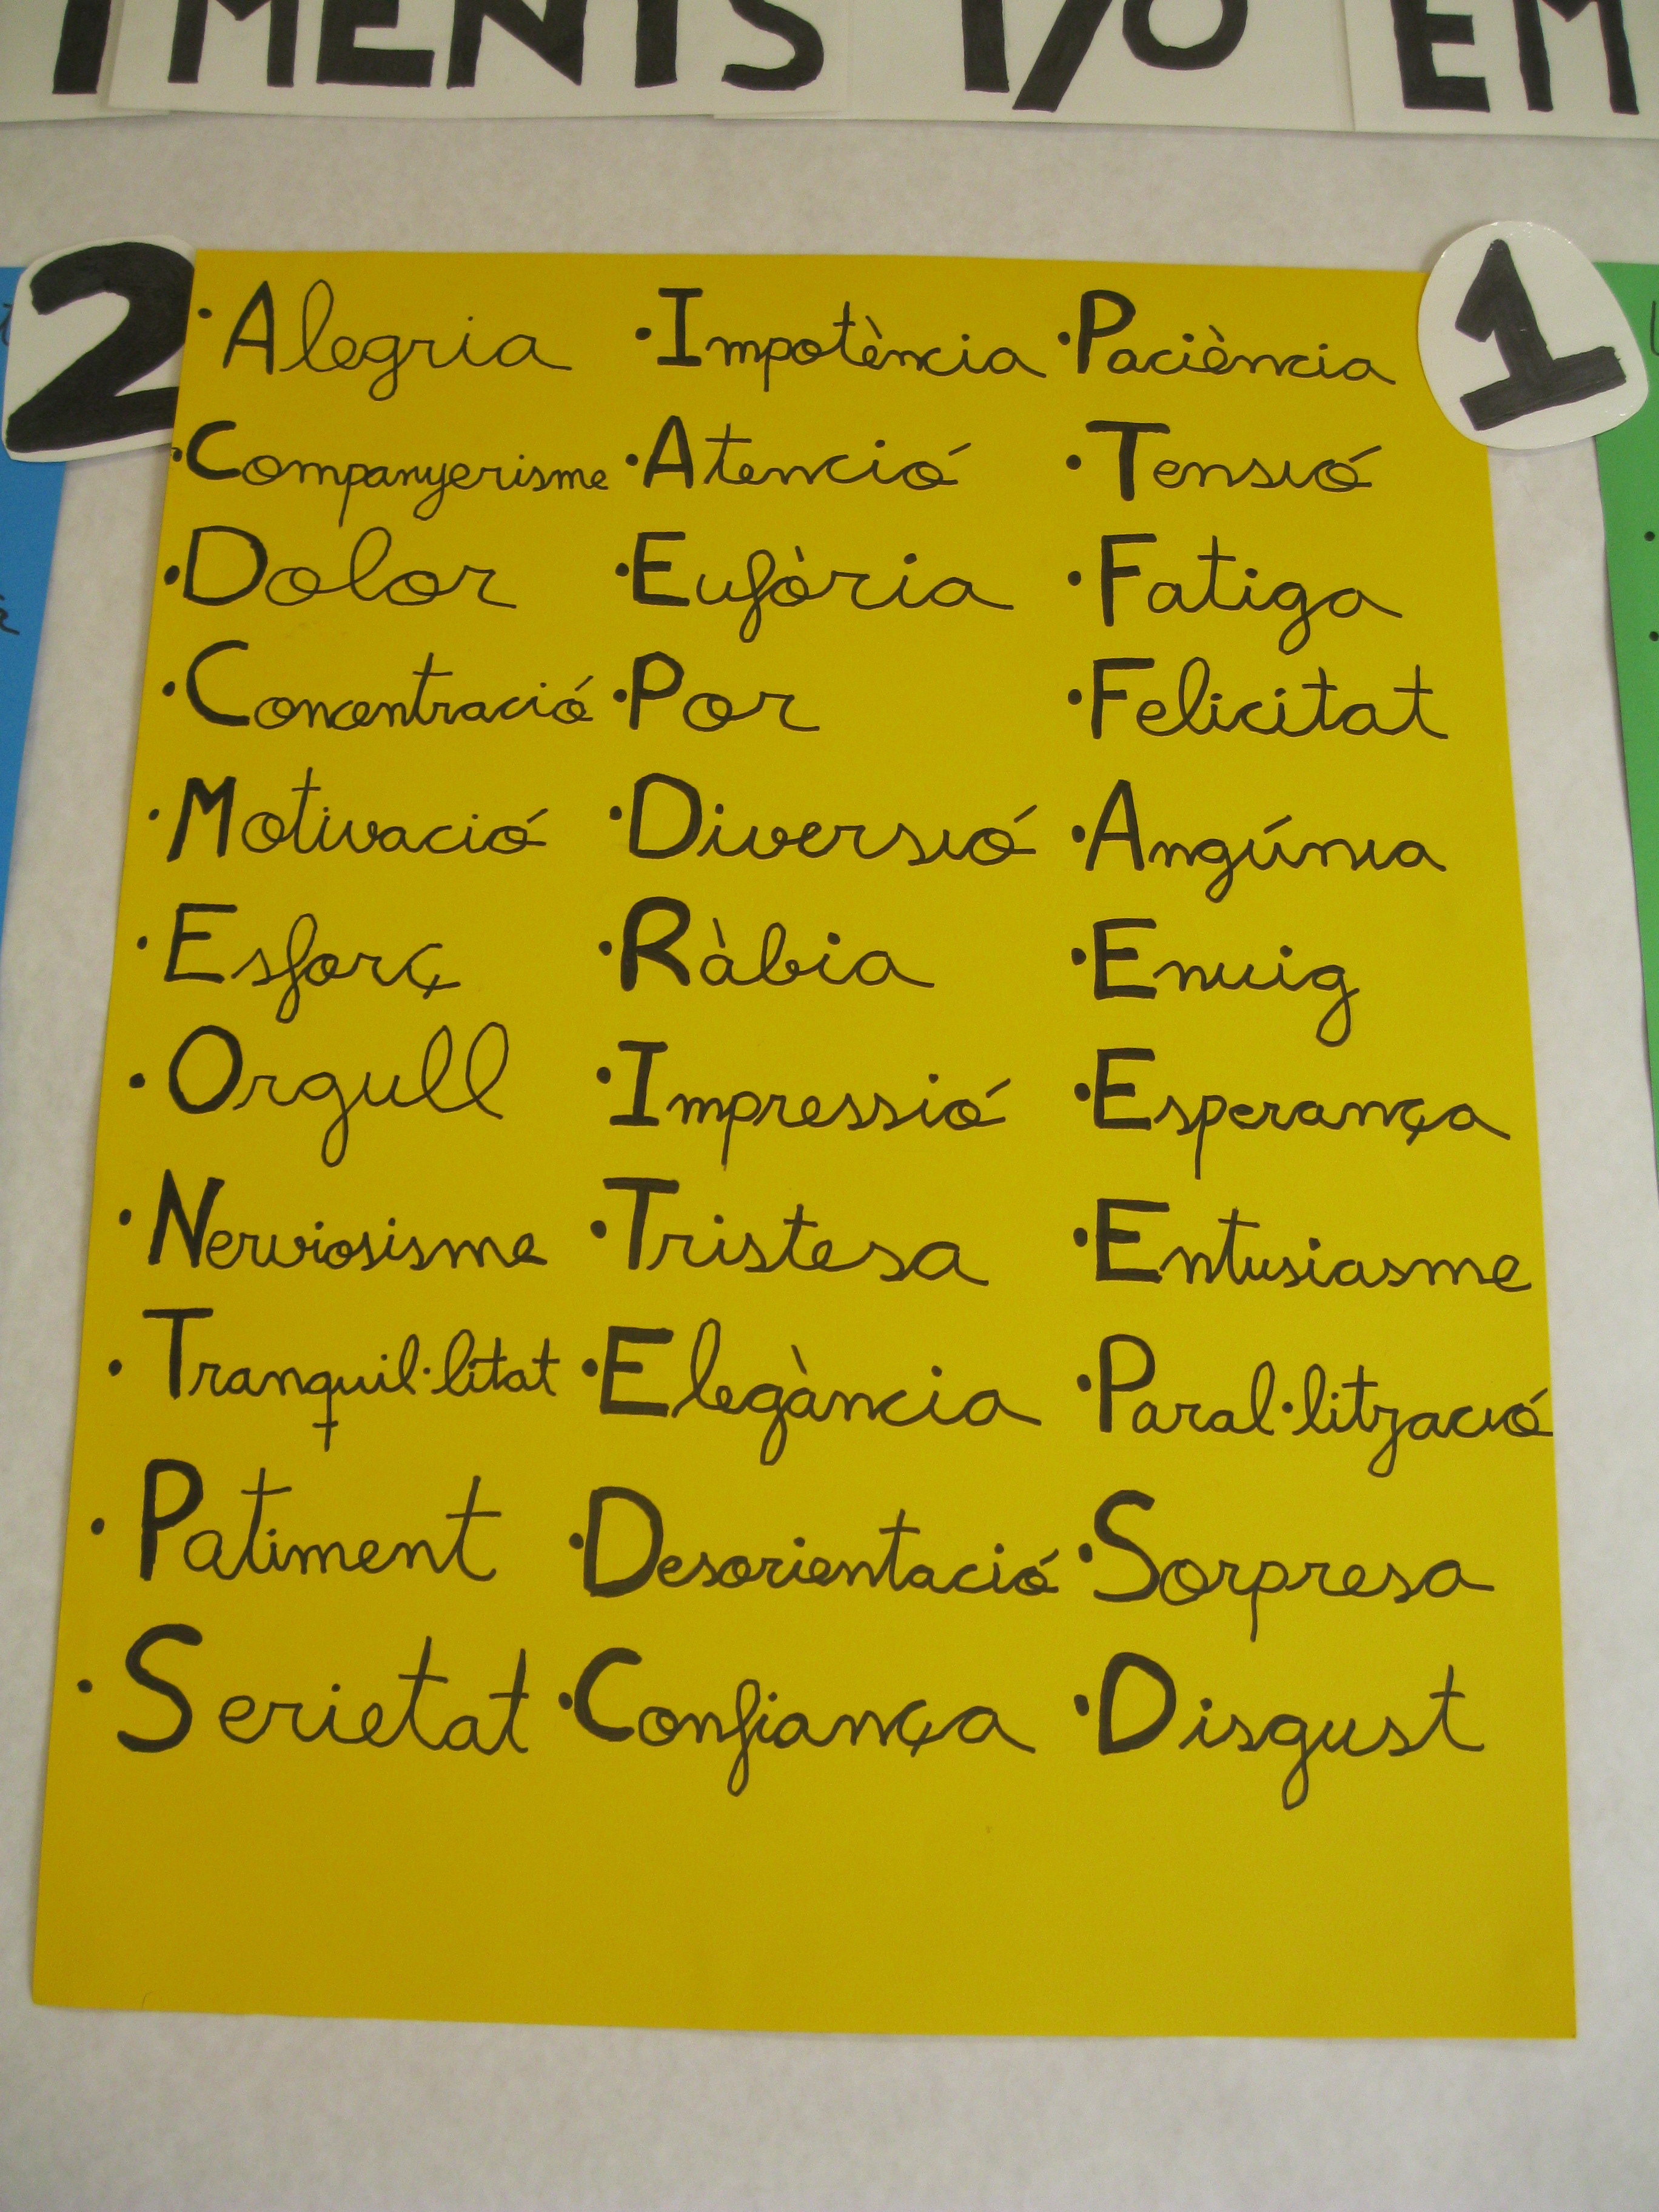 MENTS I/O EM
2
1
· Alegria · Impotència · Paciència
· Companyerisme · Atenció · Tensió
· Dolor · Eufòria · Fatiga
· Concentració · Por · Felicitat
· Motivació · Diversió · Angúnia
· Esforç · Ràbia · Enuig
· Orgull · Impressió · Esperança
· Nerviosisme · Tristesa · Entusiasme
· Tranquil·litat · Elegància · Paral·lització
· Patiment · Desorientació · Sorpresa
· Serietat · Confiança · Disgust